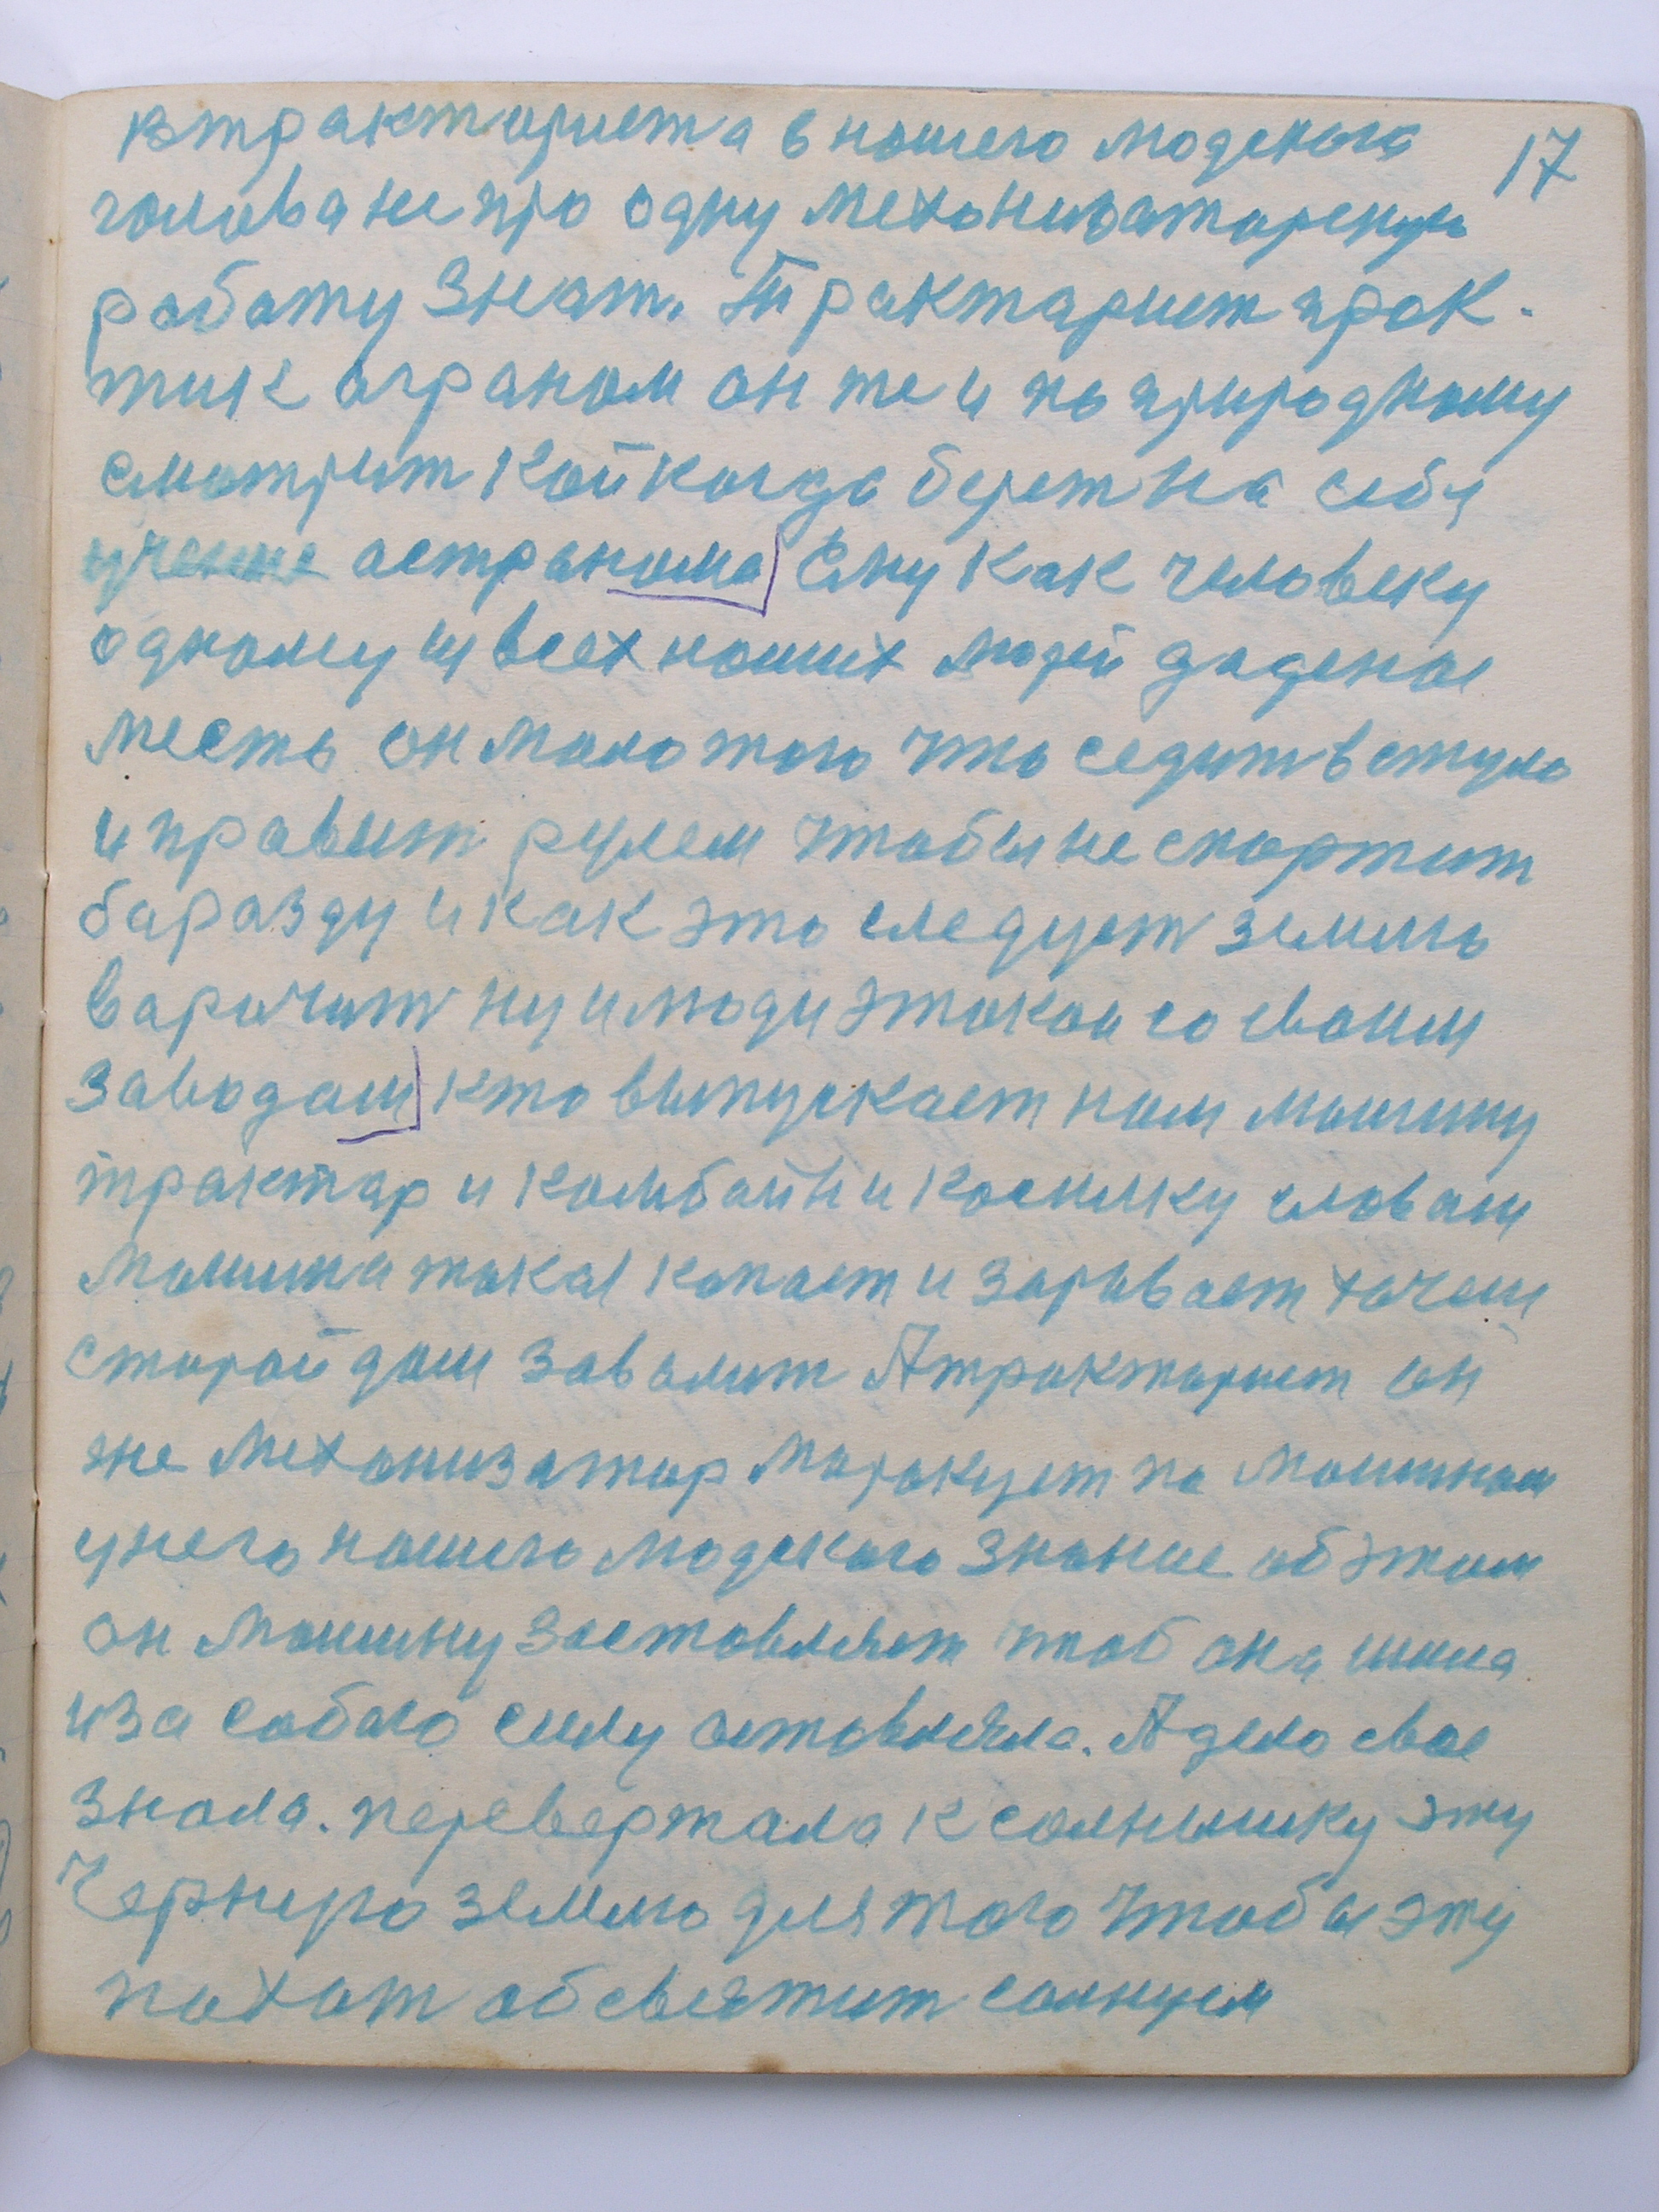 В тракториста в нашего людского 17
голова не про одну механизаторскую
работу знат. Трактарист прак-
тик аграном он же и по природному
смотрит кой когда берет на себя
учение астранома Ему как человеку
одному из всех наших людей дадена
месть он мало того что седит в стуле
и правит рулем чтобы не спортит
баразду и как это следует землю
варочит ну и люди этакои со своим
заводам кто выпускает нам машину
трактар и камбайн и косилку словам
машина такая капает и зарывает хочеш
старой дом завалит А трактарист он
же механизатар маракует по машинам
у него нашего людского знание об этом
он машину заставляет чтоб она шла
и за собою силу оставляла. А дело свое
знала. перевертала к солнышку эту
Чернею землю для того чтобы эту
пахот обсвятит солнцем